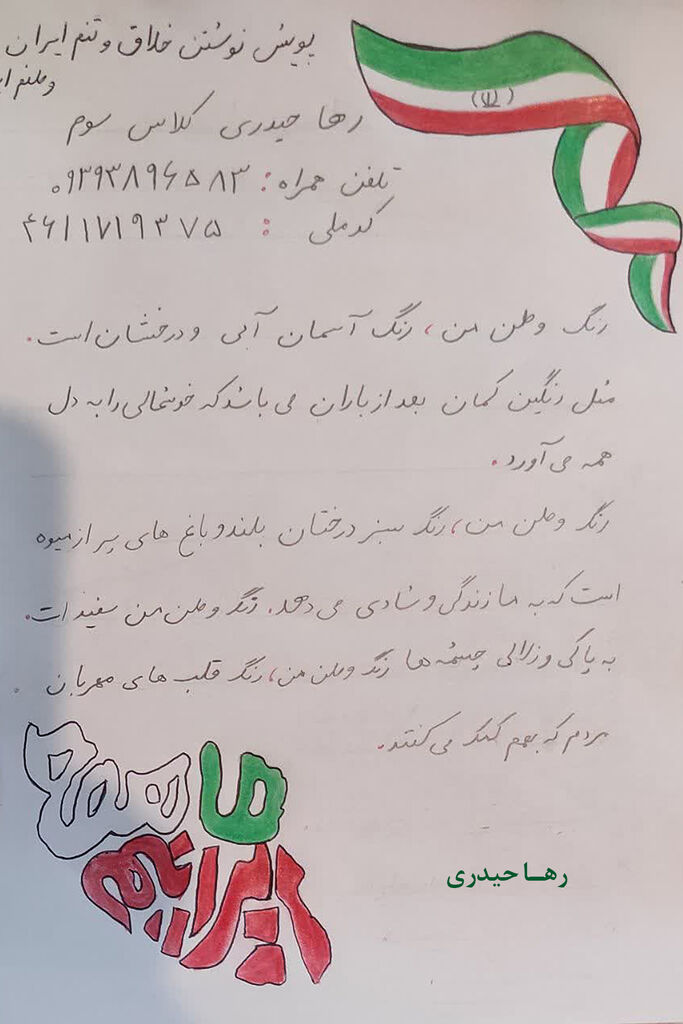 پویش نوشتن خلاق وتنم ایران
وطنم
رها حیدری کلاس سوم
تلفن همراه: ۰۹۳۹۳۸۹۶۵۸۳
کد ملی : ۴۶۱۱۷۱۹۳۷۵
رنگ وطن من، رنگ آسمان آبی و درخشان است.
مثل رنگین کمان بعد از باران می باشد که خوشحالی را به دل
همه می آورد.
رنگ وطن من، رنگ سبز درختان بلند و باغ های پر از میوه
است که به ما زندگی و شادی می دهد. رنگ وطن من سفید ات.
به پاکی و زلالی چشمه ها رنگ وطن من، رنگ قلب های مهربان
مردم که بهم کمک می کنند.
ما همه
ایرانیم
رها حیدری